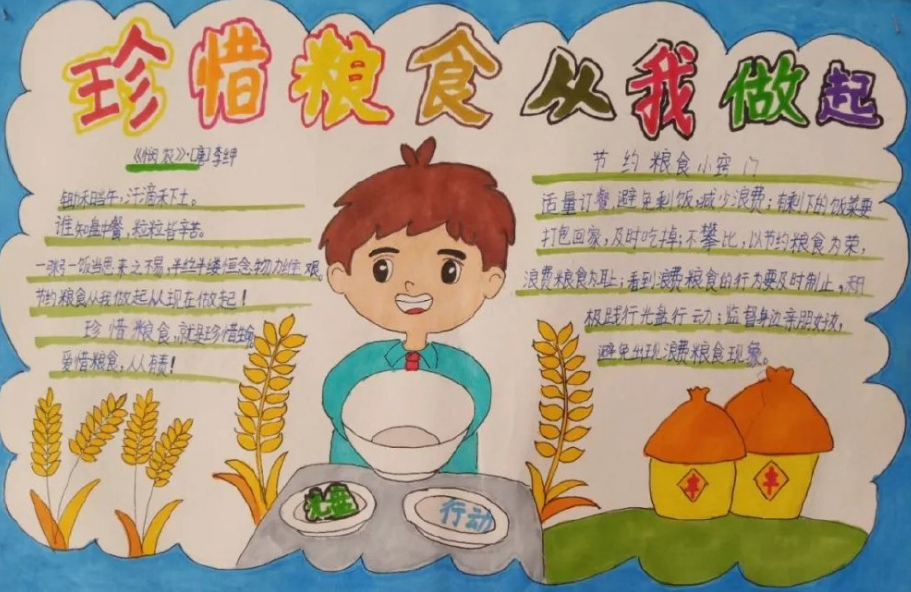 珍惜粮食从我做起
《悯农》·[唐]李绅
锄禾日当午,汗滴禾下土。
谁知盘中餐,粒粒皆辛苦。
一粥一饭当思来之不易,半丝半缕恒念物力维艰
节约粮食从我做起从现在做起!
珍惜粮食,就是珍惜生命
爱惜粮食,人人有责!
节约粮食小窍门
适量订餐,避免剩饭,减少浪费;有剩下的饭菜要
打包回家,及时吃掉;不攀比,以节约粮食为荣,
浪费粮食为耻;看到浪费粮食的行为要及时制止,积
极践行光盘行动;监督身边亲朋好友,
避免出现浪费粮食现象。
光盘
行动
丰
丰